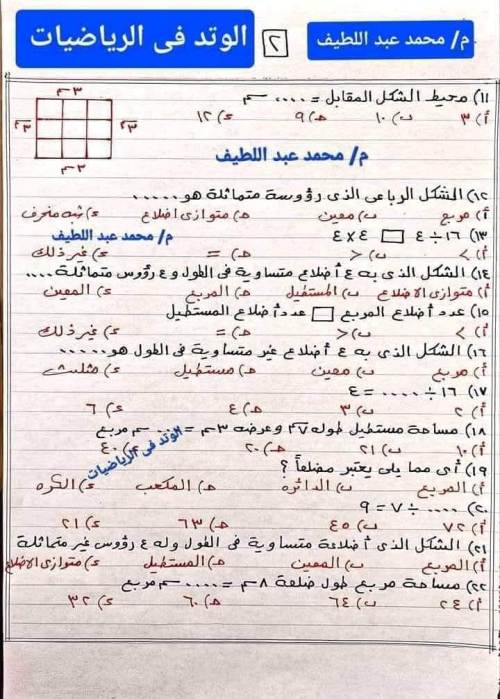 م/ محمد عبد اللطيف
٢
الوتد فى الرياضيات
١١) محيط الشكل المقابل = .... سم
أ) ٣ ب) ١٠ حـ) ٩ ء) ١٢
٣سم
٣سم
٣سم
٣سم
م/ محمد عبد اللطيف
١٢) الشكل الرباعى الذى رؤوسة متماثلة هو .....
أ) مربع ب) معين حـ) متوازى اضلاع ء) شبه منحرف
١٣) ١٦ ÷ ٤ □ ٤ × ٤
م/ محمد عبد اللطيف
أ) > ب) < حـ) = ء) غير ذلك
١٤) الشكل الذى به ٤ أضلاع متساوية فى الطول و ٤ رؤوس متماثلة ....
أ) متوازى الاضلاع ب) المستطيل حـ) المربع ء) المعين
١٥) عدد أضلاع المربع □ عدد أضلاع المستطيل
أ) > ب) < حـ) = ء) غير ذلك
١٦) الشكل الذى به ٤ أضلاع غير متساوية فى الطول هو .....
أ) مربع ب) معين حـ) مستطيل ء) مثلث
١٧) ١٦ ÷ .... = ٤
أ) ٢ ب) ٣ حـ) ٤ ء) ٦
١٨) مساحة مستطيل طوله ٧سم وعرضه ٣سم = .... سم مربع
أ) ١٠ ب) ٢١ حـ) ٢٠ ء) ٤٠
الوتد فى الرياضيات
١٩) أى مما يلى يعتبر مضلعاً ؟
أ) المربع ب) الدائره حـ) المكعب ء) الكره
٢٠) .... ÷ ٧ = ٩
أ) ٧٢ ب) ٤٥ حـ) ٦٣ ء) ٢١
٢١) الشكل الذى أضلاعة متساوية فى الطول وله ٤ رؤوس غير متماثلة
أ) المربع ب) المعين حـ) المستطيل ء) متوازى الاضلاع
٢٢) مساحة مربع طول ضلعة ٨سم = .... سم مربع
أ) ٢٤ ب) ٦٤ حـ) ٦٠ ء) ٣٢